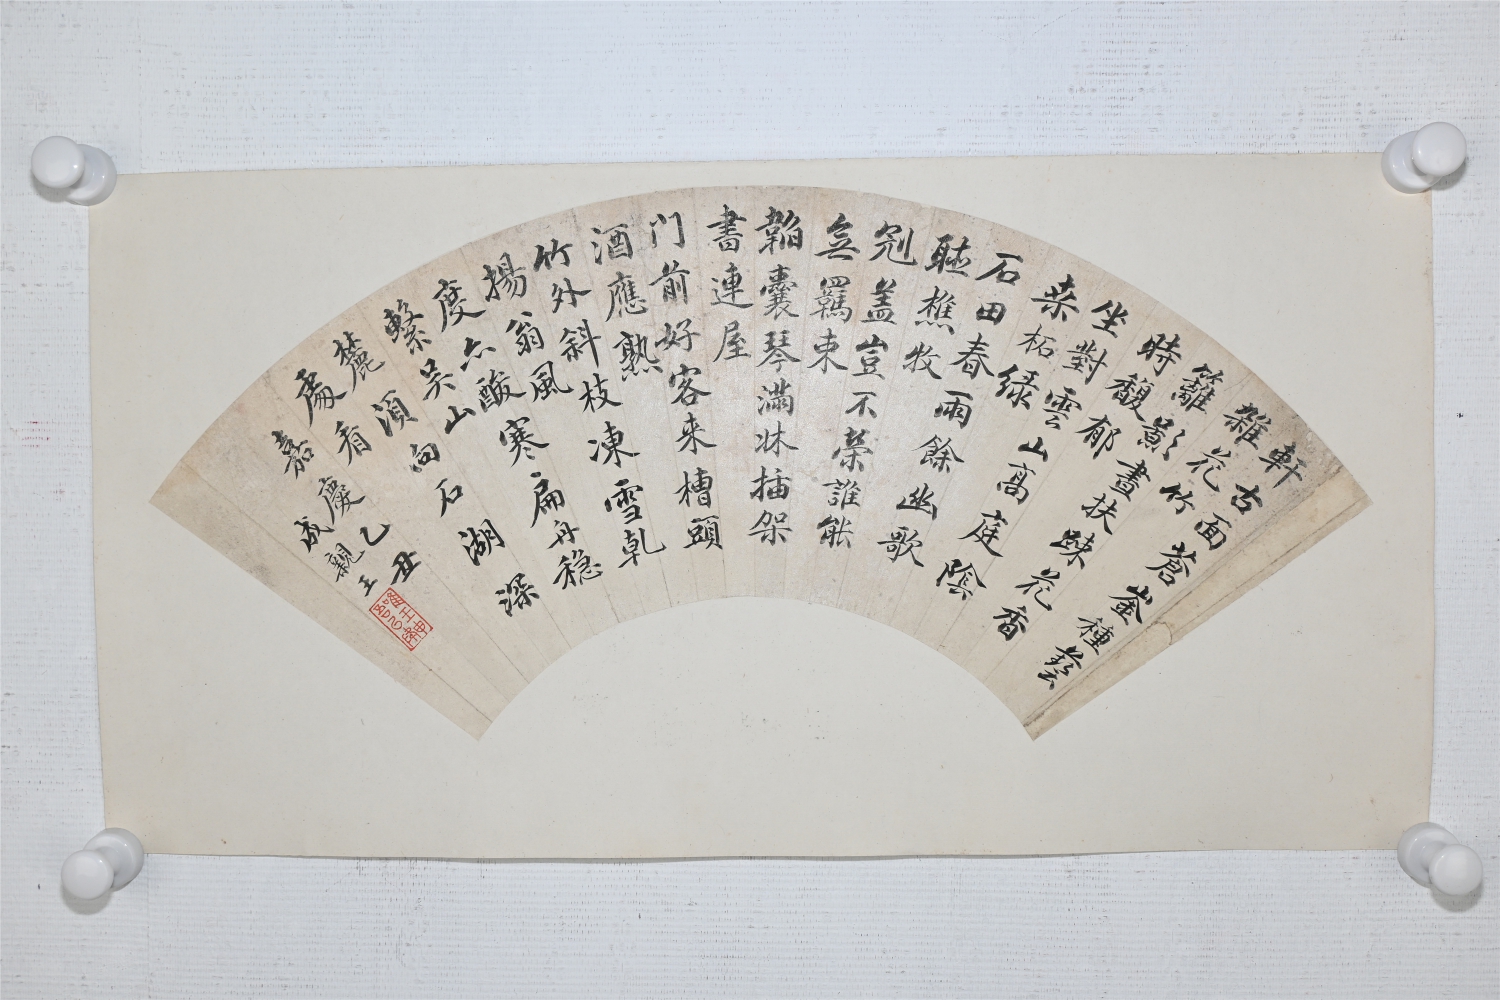 軒古面蒼崟種蓺
雜花竹
籬影晝扶疎花香
時馥郁
坐對雲山高庭陰
桒柘绿
石田春雨餘幽歌
聴樵牧
剜盖豈不榮誰能
無羈束
韜囊琴滿牀插架
書連屋
门前好客来槽頭
酒應熟
竹外斜枝凍雪乹
揚翁風
度亦酸寒扁舟稳
繫吴山
麓須向石湖深
處看
嘉慶乙丑
成親王